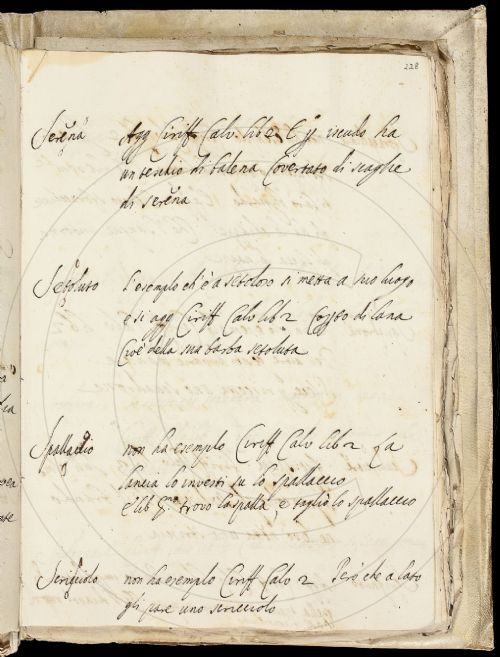 228
Serena Agg Ciriff Calv lib 2 E p iscudo ha
un teschio di balena Covertato di scaglie
di serena
Setoluto L'esemplo ch'è a setoloso si metta a suo luogo
e si agg Ciriff Calv lib 2 di lana
Cioè della sua barba setoluta
Spallaccio non ha esemplo Ciriff Calv lib 2 La
lancia lo investì su lo spallaccio
E lib trovò la spalla e tagliò lo spallaccio
Scricciolo non ha esemplo Ciriff Calv 2 Però che a lato
gli pare uno scricciolo